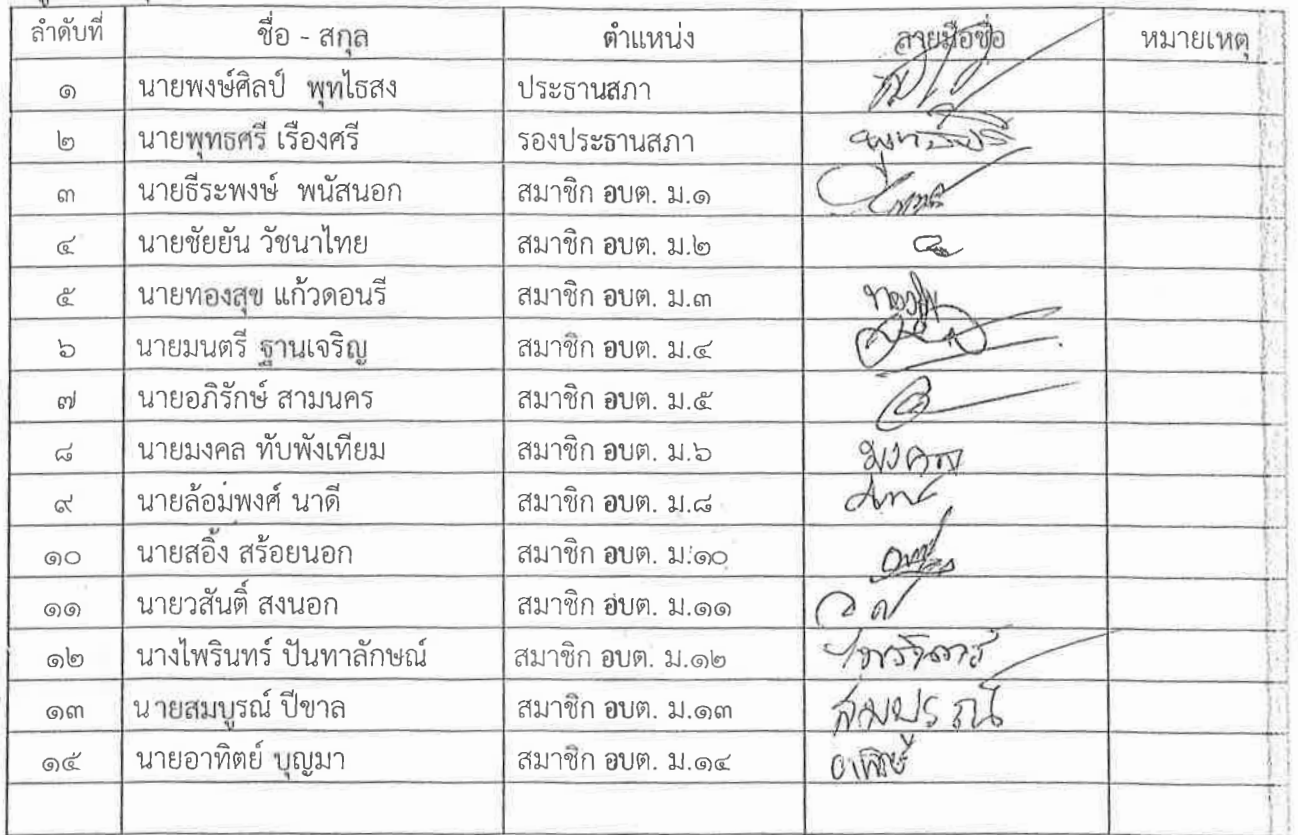 ลำดับที่ ชื่อ - สกุล ตำแหน่ง ลายมือชื่อ หมายเหตุ
๑ นายพงษ์ศิลป์ พุทไธสง ประธานสภา
๒ นายพุทธศรี เรืองศรี รองประธานสภา พุทธศรี
๓ นายธีระพงษ์ พนัสนอก สมาชิก อบต. ม.๑
๔ นายชัยยัน วัชนาไทย สมาชิก อบต. ม.๒
๕ นายทองสุข แก้วดอนรี สมาชิก อบต. ม.๓ ทองสุข
๖ นายมนตรี ฐานเจริญ สมาชิก อบต. ม.๔
๗ นายอภิรักษ์ สามนคร สมาชิก อบต. ม.๕
๘ นายมงคล ทับพังเทียม สมาชิก อบต. ม.๖ มงคล
๙ นายล้อมพงศ์ นาดี สมาชิก อบต. ม.๘
๑๐ นายสอิ้ง สร้อยนอก สมาชิก อบต. ม.๑๐
๑๑ นายวสันติ์ สงนอก สมาชิก อบต. ม.๑๑
๑๒ นางไพรินทร์ ปันทาลักษณ์ สมาชิก อบต. ม.๑๒ ไพรินทร์
๑๓ นายสมบูรณ์ ปีขาล สมาชิก อบต. ม.๑๓ สมบูรณ์
๑๔ นายอาทิตย์ บุญมา สมาชิก อบต. ม.๑๔ อาทิตย์